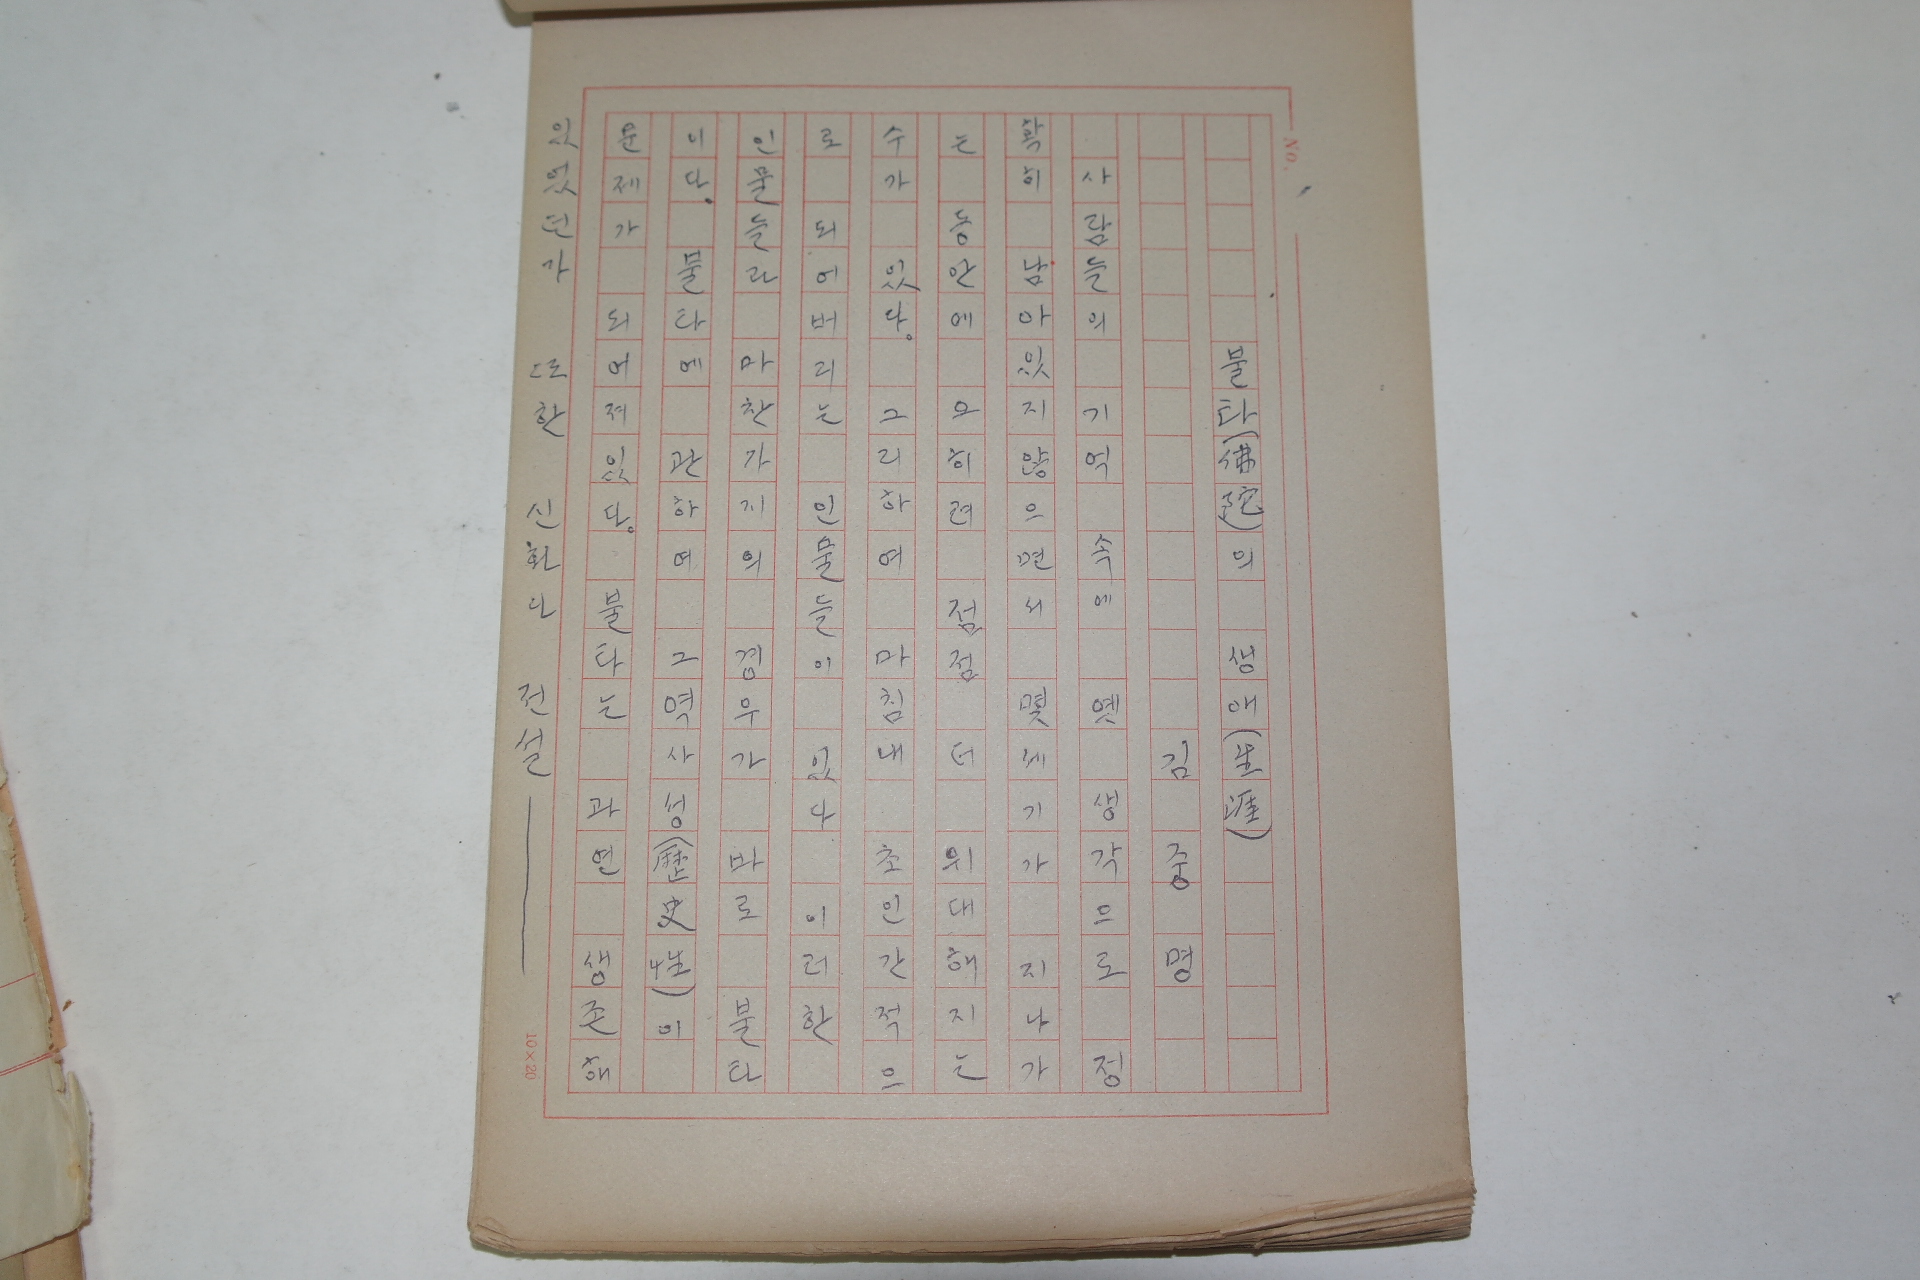 No.
불타(佛陀)의 생애(生涯)
김 중 명
사람들의 기억 속에 옛 생각으로 정
확히 남아있지않으면서 몇세기가 지나가
는 동안에 오히려 점점 더 위대해지는
수가 있다. 그리하여 마침내 초인간적으
로 되어버리는 인물들이 있다 이러한
인물들과 마찬가지의 경우가 바로 불타
이다. 불타에 관하여 그역사성(歷史性)이
문제가 되어져있다. 불타는 과연 생존해
있었던가 또한 신화나 전설 ——
10×20